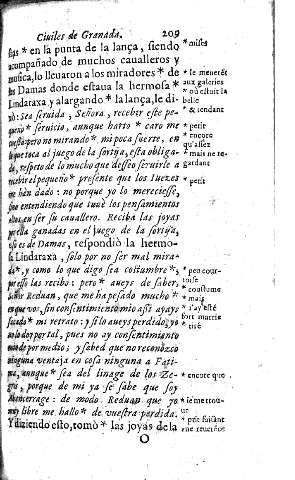 Ciuiles de Granada. 209
en la punta de la lança, siendo
acompañado de muchos caualleros y
musica, lo lleuaron a los miradores * de
las Damas donde estaua la hermosa *
Lindaraxa y alargando * la lança, le di-
xo: Sea seruida, Señora, recebir este pe-
queño * seruicio, aunque harto * caro me
cuesta pero no mirando * mi poca suerte, en
lo que toca al juego de la sortija, esta obliga-
da, respeto de lo mucho que desseo seruirle a
recebir el pequeño * presente que los Iuezes
me han dado: no porque yo lo mereciesse,
sino entendiendo que tuue los pensamientos
en ser su cauallero. Reciba las joyas
ganadas en el juego de la sortija,
es de Damas, respondiò la hermo-
sa Lindaraxa, solo por no ser mal mira-
da *, y como lo que digo sea costumbre *,
por esso las recibo: pero * aueys de saber,
señor Reduan, que me ha pesado mucho *
en que vos, sin consentimiento mio ayays
* mi retrato: y si lo aueys perdido, yo
no lo doy por tal, pues no ay consentimiento
mio de por medio; y sabed que no reconozco
ninguna ventaja en cosa ninguna a Fati-
ma, aunque * sea del linage de los Ze-
gris, porque de mi ya se sabe que soy
Abencerrage: de modo Reduan que yo
muy libre me hallo * de vuestra perdida.
Y diziendo esto, tomò * las joyas de la
O
* mises
* le menerẽt
aux galeries
* où estoit la
belle
* & tendant
* petit
* encore
qu'assez
* mais ne re-
gardant
* petit
* peu cour-
toise
* coustume
* mais
* encore que
* ie me trou-
ue
* prit faisant